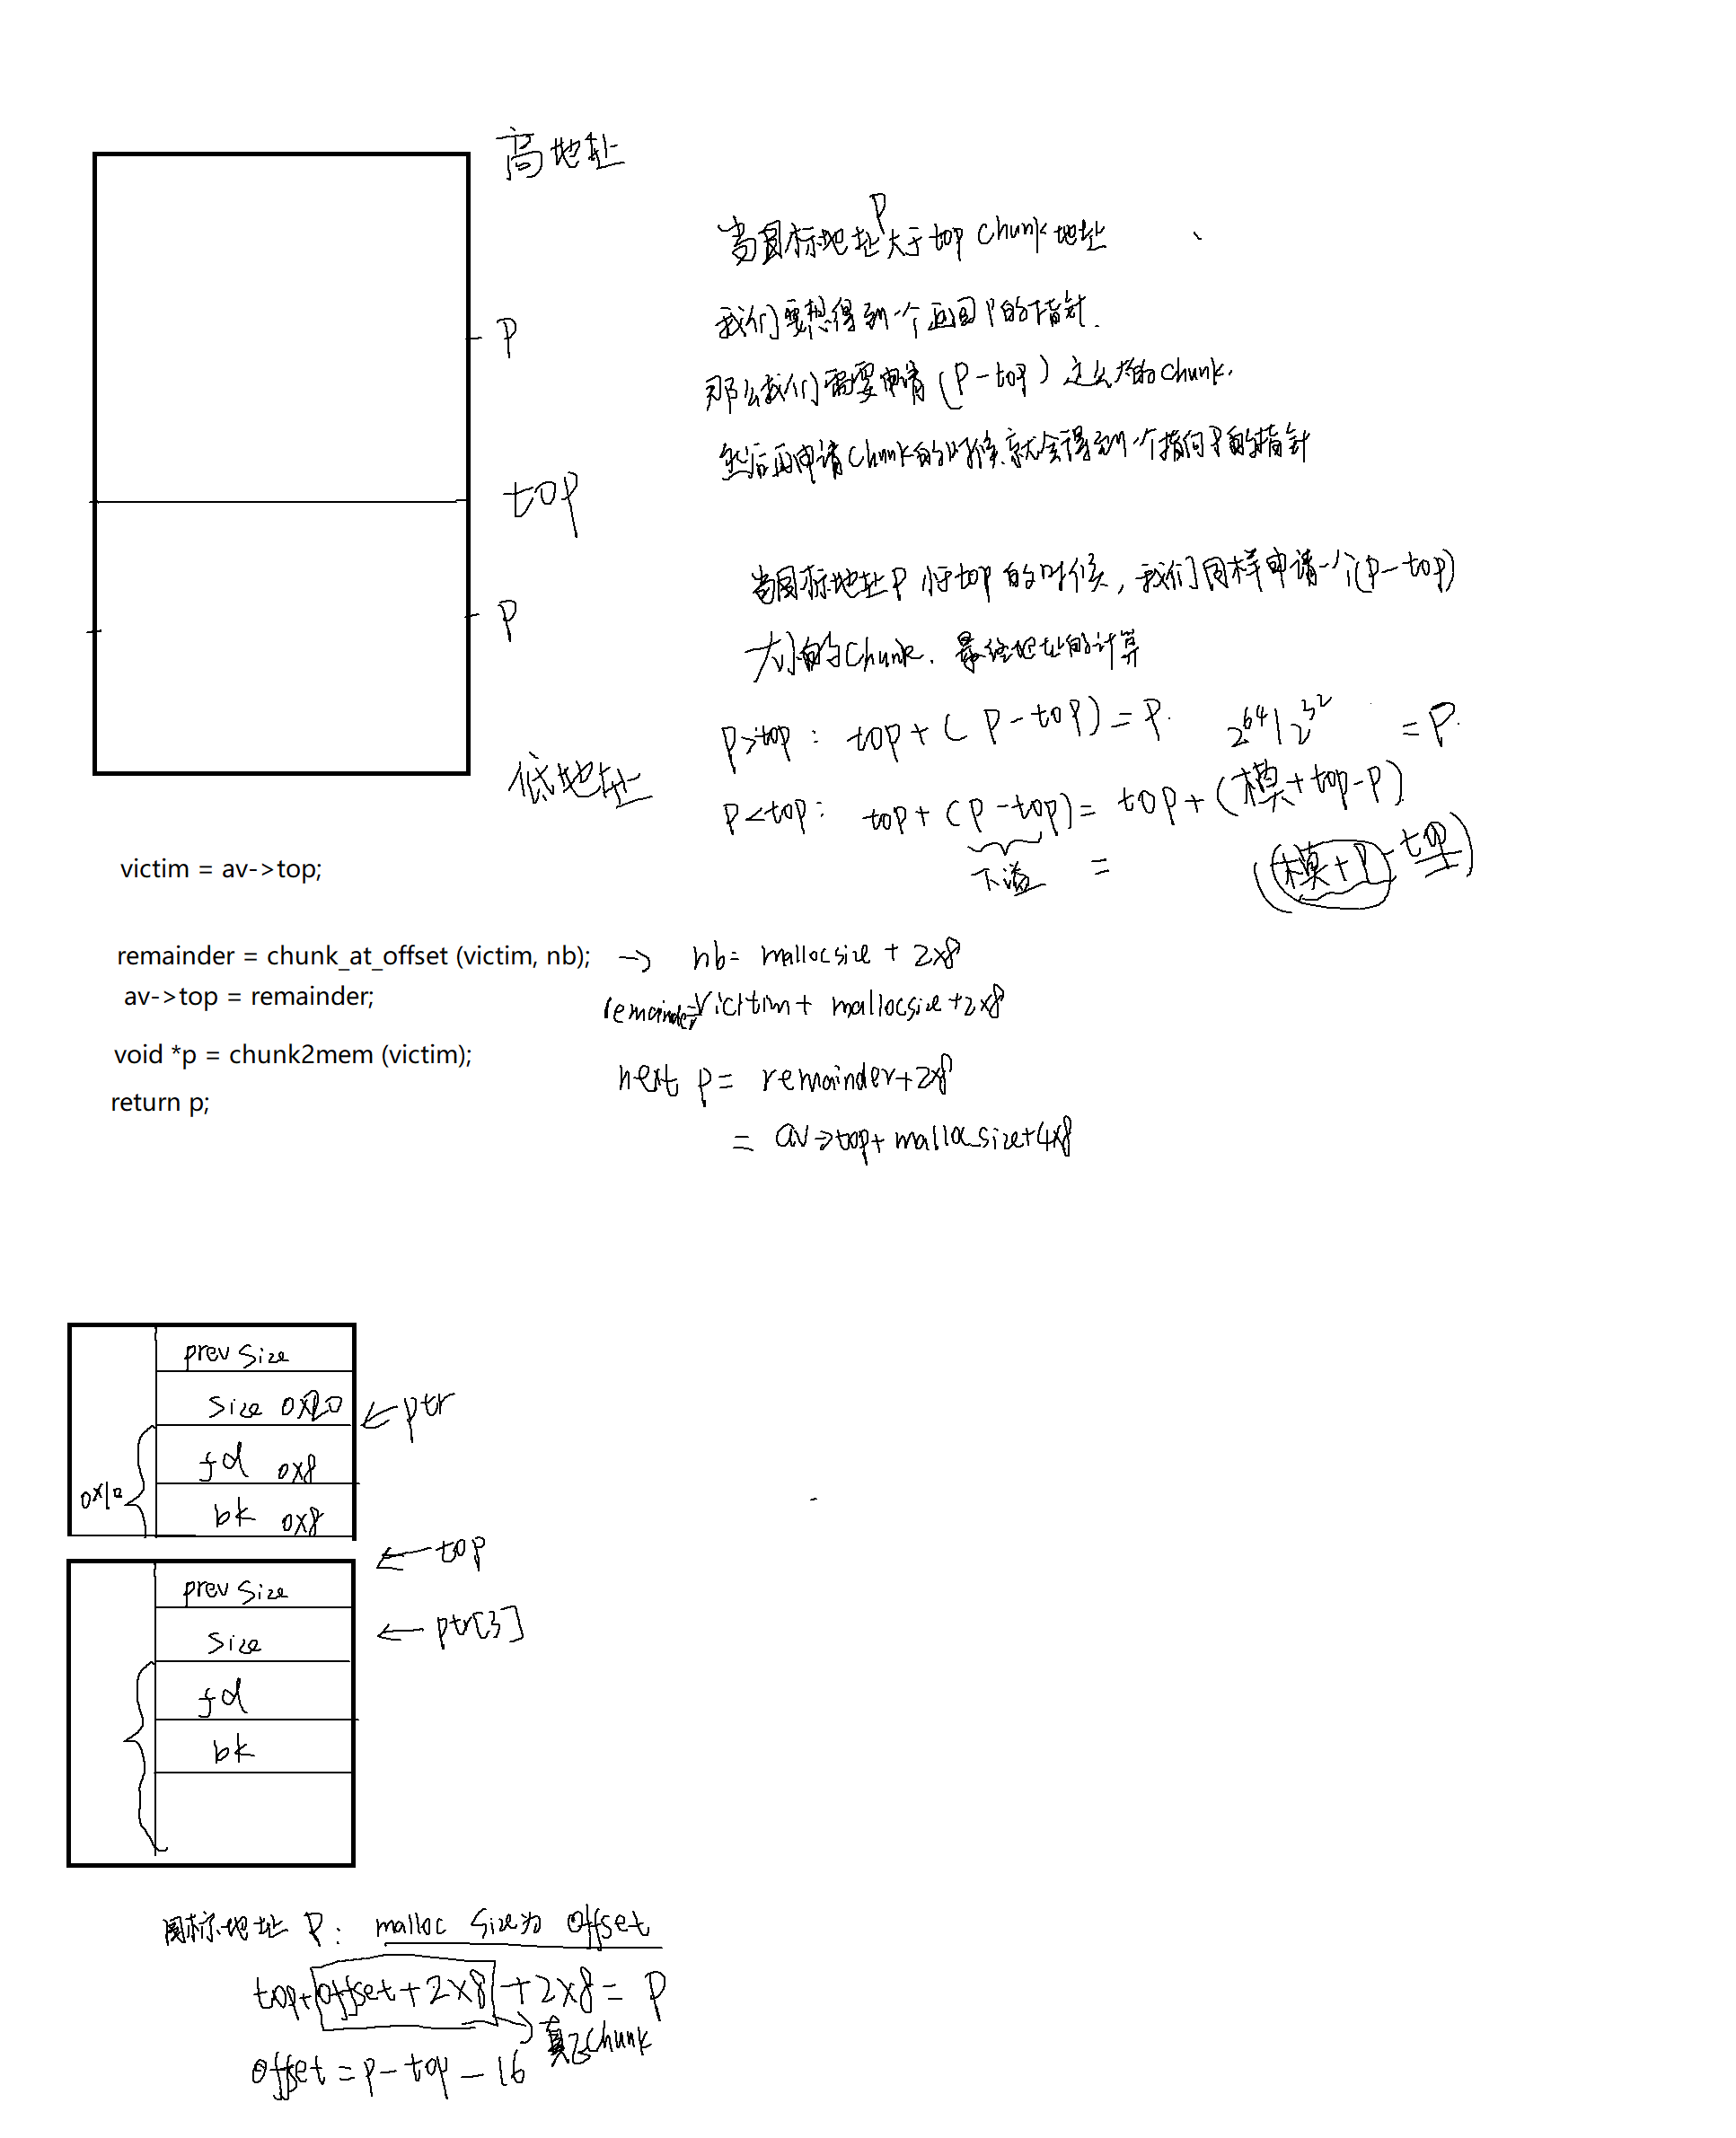 高地址
P
top
P
低地址
当目标地址P大于top chunk地址
我们要想得到一个返回P的指针.
那么我们需要申请(P-top)这么大的chunk.
然后再申请chunk的时候就会得到一个指向P的指针
当目标地址P小于top的时候,我们同样申请一个(P-top)
大小的chunk. 最终地址的计算
P>top: top+(P-top)=P. 2^64|2^32 =P.
P<top: top+(P-top)=top+(模+top-P)
下溢 = (模+P-top)
victim = av->top;
remainder = chunk_at_offset (victim, nb); → nb= mallocsize + 2x8
av->top = remainder;
remainder=victim+ mallocsize+2x8
void *p = chunk2mem (victim);
next p= remainder+2x8
return p;
= av->top+mallocsize+4x8
prev size
size 0x20 ← ptr
fd 0x8
0x10
bk 0x8
← top
prev size
size ← ptr[3]
fd
bk
目标地址 P: malloc size为 offset
top+offset+2x8+2x8= P
→真正chunk
offset=P-top-16